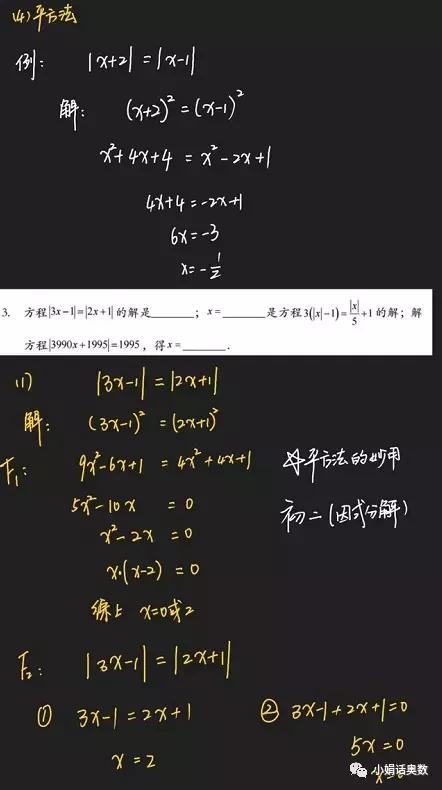 (4)平方法
例: |x+2|=|x-1|
解: (x+2)²=(x-1)²
x²+4x+4=x²-2x+1
4x+4=-2x+1
6x=-3
x=-1/2
3. 方程|3x-1|=|2x+1|的解是______；x=______是方程3(|x|-1)=|x|/5+1的解；解
方程|3990x+1995|=1995，得x=______.
(1) |3x-1|=|2x+1|
解: (3x-1)²=(2x+1)²
F₁: 9x²-6x+1=4x²+4x+1
平方法的妙用
5x²-10x=0
初二(因式分解)
x²-2x=0
x·(x-2)=0
综上 x=0或2
F₂: |3x-1|=|2x+1|
① 3x-1=2x+1
② 3x-1+2x+1=0
x=2
5x=0
x=0
小娟话奥数